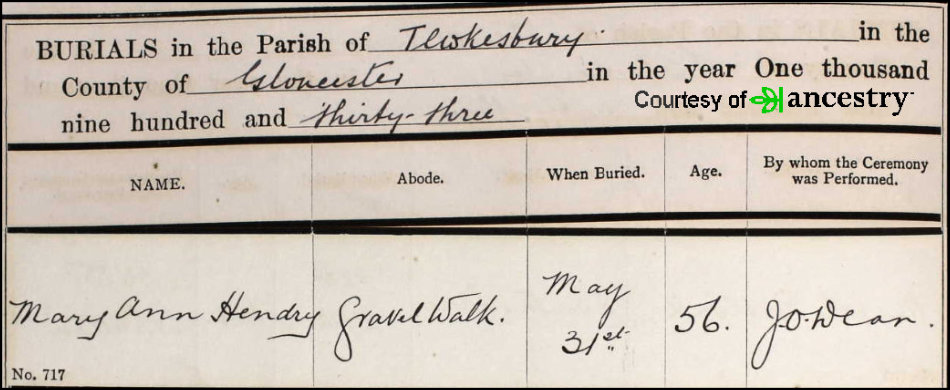 BURIALS in the Parish of Tewkesbury in the
County of Gloucester in the year One thousand
Courtesy of ancestry
nine hundred and thirty-three
NAME. Abode. When Buried. Age. By whom the Ceremony
was Performed.
Mary Ann Hendry Gravel Walk. May
31st 56. J. O. Dean.
No. 717